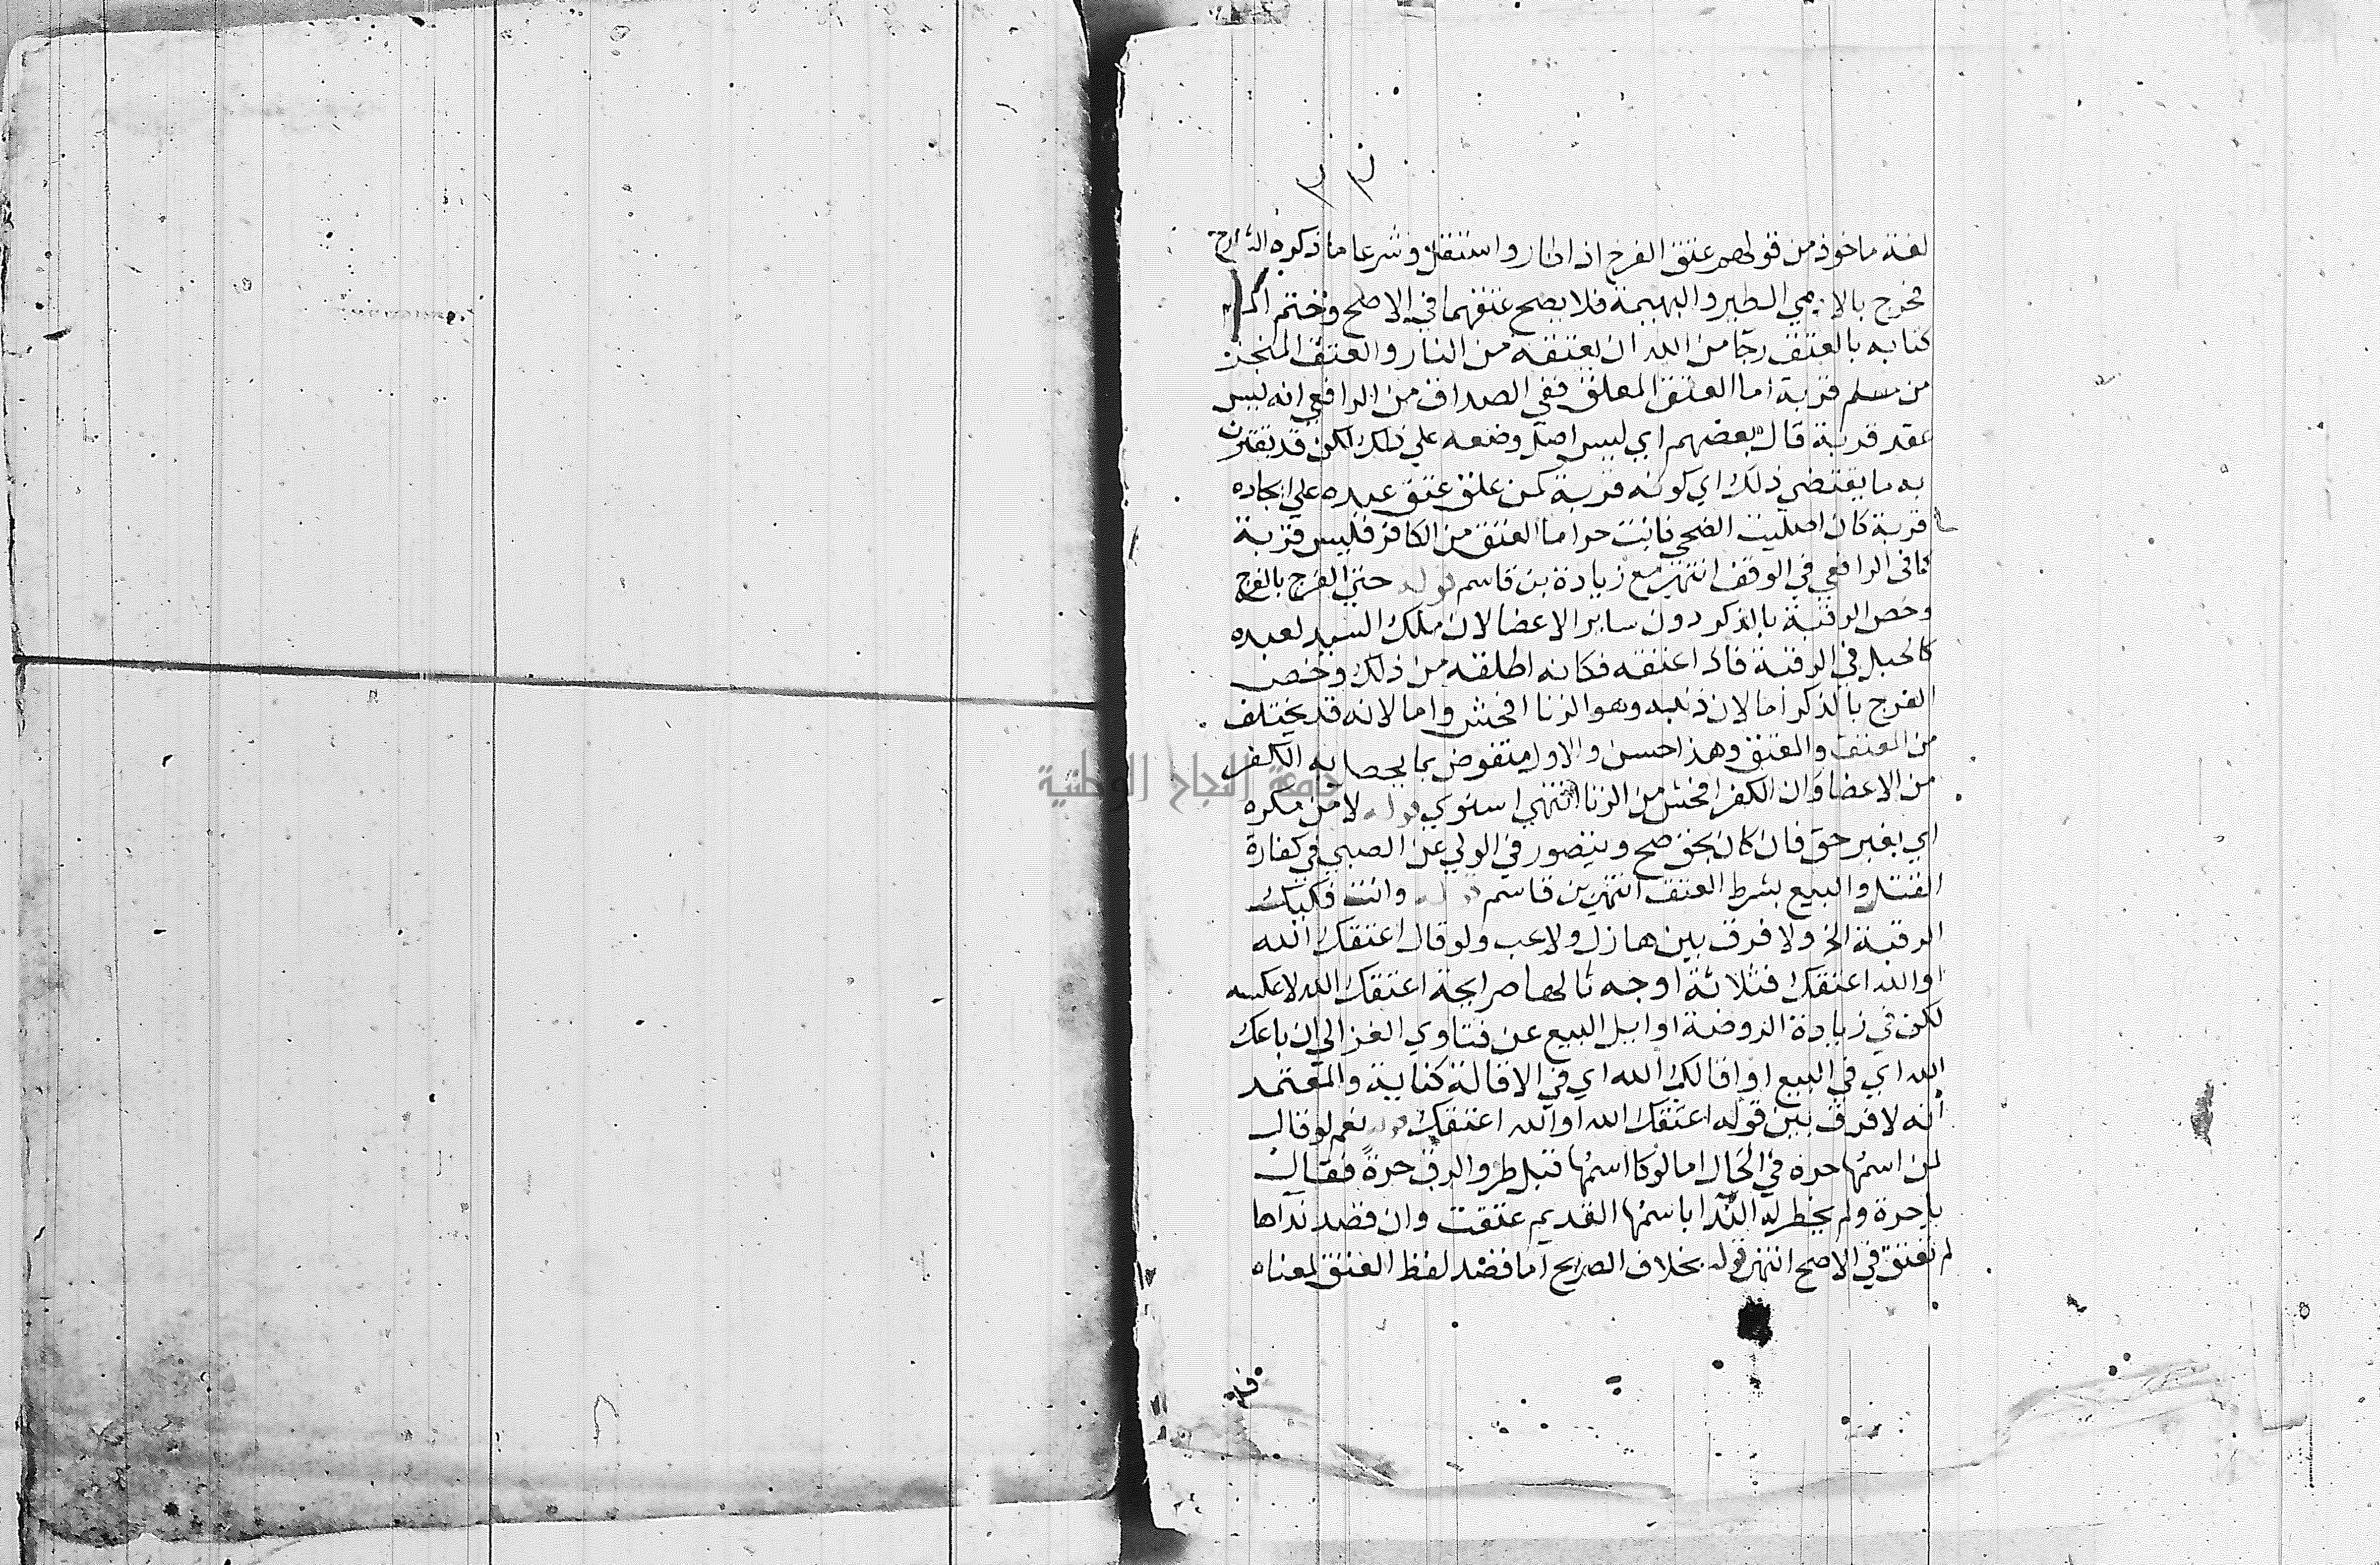 لغة ماخوذ من قولهم عتق الفرخ اذا طار واستقل وشرعا ما ذكره الشارح
فخرج بالادمي الطير والبهيمة فلا يصح عتقهما في الاصح وختم
كتابه بالعتق رجا من الله ان يعتقه من النار والعتق المنجز
من مسلم قربة اما العتق المعلق ففي الصداق من الرافعي انه ليس
عقد قربة قال بعضهم اي ليس اصل وضعه علي ذلك لكن قد يقترن
به ما يقتضي ذلك اي كونه قربة كمن علق عتق عبده علي ايجاده
قربة كان اصليت الضحي فانت حر اما العتق من الكافر فليس قربة
كما في الرافعي في الوقف انتهي مع زيادة بن قاسم قوله حتي الفرج بالفرج
وخص الرقبة بالذكر دون ساير الاعضا لان ملك السيد لعبده
كالحبل في الرقبة فاذا اعتقه فكانه اطلقه من ذلك وخص
الفرج بالذكر اما لان ذنبه وهو الزنا افحش واما لانه قد يختلف
من المعتق والمعتق وهذا احسن والاول منقوض بما يحصل به الكفر
من الاعضا وان الكفر افحش من الزنا انتهي اسنوي قوله لا من مكره
اي بغير حق فان كان بحق صح ويتصور في الولي عن الصبي في كفارة
القتل والبيع بشرط العتق انتهي بن قاسم قوله وانت فكيك
الرقبة الخ ولا فرق بين هازل ولاعب ولو قال اعتقك الله
او الله اعتقك فثلاثة اوجه ثالثها صراحة اعتقك الله لا عكسه
لكن في زيادة الروضة اوايل البيع عن فتاوي الغزالي ان باعك
الله اي في البيع او اقالك الله اي في الاقالة كناية والمعتمد
انه لا فرق بين قوله اعتقك الله او الله اعتقك قوله نعم لو قال
لمن اسمها حرة في الحال اما لو كا اسمها قبل طرو الرق حرة فقال
يا حرة ولم يخطر له الندا باسمها القديم عتقت وان قصد نداها
لم تعتق في الاصح انتهي قوله بخلاف الصريح اما قصد لفظ العتق لمعناه
جامعة النجاح الوطنية